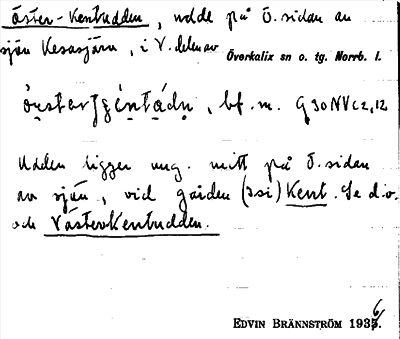 Öster-Kentudden, udde på Ö. sidan av
sjön Kesasjärv, i V. delen av Överkalix sn o. tg. Norrb. l.
bf. m. 930NVc2,12
Udden ligger ung. mitt på Ö. sidan
av sjön, vid gården (osi) Kent. Se d.o.
och VästerKentudden.
EDVIN BRÄNNSTRÖM 1936.